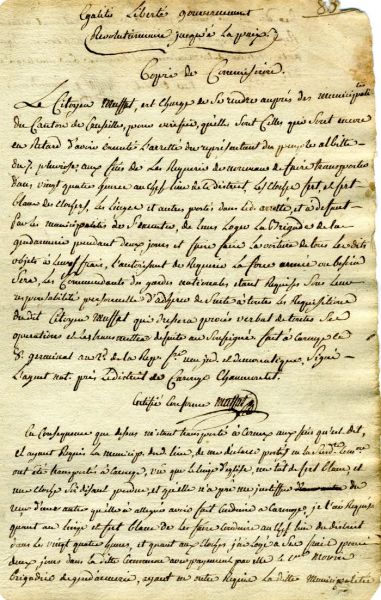 Egalité Liberté gouvernement
Revolutionnaire jusqu'à la paix
Copie de Commission.
Le Citoyen Muffat, est Chargé de se rendre auprès des municipalités
du Canton de pour verifier, quelles sont Celles qui sont encore
en Retard d'avoir executé L'arretté du représentant du peuple albitte
du 7. pluviose; aux fins de Les Requerir de nouveau de faire transporter
dans vingt quatre heures au Chef lieu de le district, les Cloches, fer, et fer
blanc des Clochers, les linges et autres portés dans led. arretté, et à defaut
Par les municipalités de de Loger la Brigade de la
gendarmerie pendant deux jours et faire faire la voiture de tous les dits
objets à leurs frais, l'autorisant de Requerir la force armée au besoin
Sera, les Commandants des gardes nationales etant Requis sous leur
responsabilité personnelle d'adherer de suite à toutes les Requisitions
dudit Citoyen Muffat qui dressera procès verbal de toutes ses
operations et les transmettra de suite au Soussigné fait à Carouge le
8. germinal an 2d. de la Rep. fse. une ind. et democratique, Signé
L'agent nat. près le district de Carouge Chaumontel
Certiffié Conforme Muffat
En Consequence que dessus m'étant transporté à aux fins qu'est dit,
et ayant Requis la municip. du d. lieu, de me declarer
ont été transportés à Carouge, vu que le linge d'eglise, un tas de fer blanc et
une cloche et qu'elle n'a pu me justiffier
d'une autre qu'elle a alleguée avoir fait Conduire à Carouge, je l'ai Requise
quant au linge et fer blanc de les faire Conduire au Chef lieu du district
dans les vingt quatre heures, et quant aux Cloches, j'ai Logé à ses frais pour
deux jours dans la ditte Commune avec payement par elle le Cen.
Brigadier de gendarmerie, ayant en outre Requis La ditte Municipalité